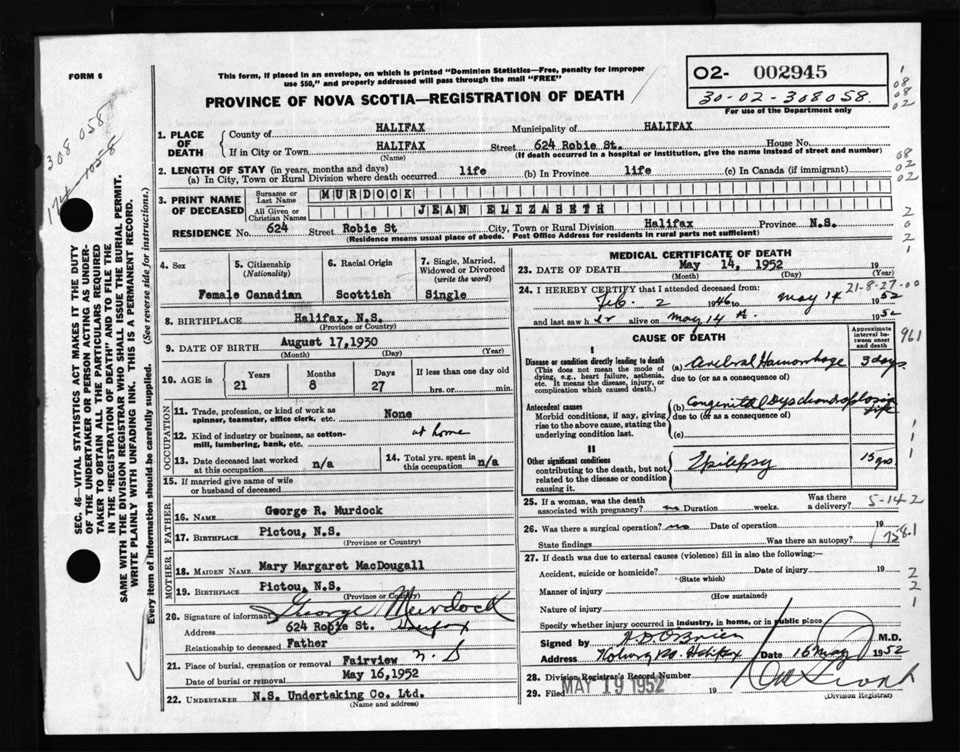 FORM 6
This form, if placed in an envelope, on which is printed "Dominion Statistics—Free, penalty for improper
use $50," and properly addressed will pass through the mail "FREE"
PROVINCE OF NOVA SCOTIA—REGISTRATION OF DEATH
02- 002945
30-02-308058.
For use of the Department only
308 058
174 1058
SEC. 46—VITAL STATISTICS ACT MAKES IT THE DUTY
OF THE UNDERTAKER OR PERSON ACTING AS UNDER-
TAKER TO OBTAIN ALL THE PARTICULARS REQUIRED
IN THE "REGISTRATION OF DEATH" AND TO FILE THE
SAME WITH THE DIVISION REGISTRAR WHO SHALL ISSUE THE BURIAL PERMIT.
WRITE PLAINLY WITH UNFADING INK. THIS IS A PERMANENT RECORD.
Every item of Information should be carefully supplied. (See reverse side for instructions.)
1. PLACE OF DEATH
County of HALIFAX Municipality of HALIFAX
If in City or Town HALIFAX Street 624 Robie St. House No.
(Name) (If death occurred in a hospital or institution, give the name instead of street and number)
2. LENGTH OF STAY (in years, months and days)
(a) In City, Town or Rural Division where death occurred life (b) In Province life (c) In Canada (if immigrant)
3. PRINT NAME OF DECEASED
Surname or Last Name MURDOCK
All Given or Christian Names JEAN ELIZABETH
RESIDENCE No. 624 Street Robie St City, Town or Rural Division Halifax N.S.
(Residence means usual place of abode. Post Office Address for residents in rural parts not sufficient)
4. Sex 5. Citizenship (Nationality) 6. Racial Origin 7. Single, Married, Widowed or Divorced (write the word)
Female Canadian Scottish Single
8. BIRTHPLACE Halifax, N.S.
(Province or Country)
9. DATE OF BIRTH August 17,1930
(Month) (Day) (Year)
10. AGE in Years Months Days If less than one day old
21 8 27 hrs. or min.
OCCUPATION
11. Trade, profession, or kind of work as
spinner, teamster, office clerk, etc. None
12. Kind of industry or business, as cotton-
mill, lumbering, bank, etc. at home
13. Date deceased last worked
at this occupation n/a
14. Total yrs. spent in
this occupation n/a
15. If married give name of wife
or husband of deceased
FATHER
16. NAME George R. Murdock
17. BIRTHPLACE Pictou, N.S.
(Province or Country)
MOTHER
18. MAIDEN NAME Mary Margaret MacDougall
19. BIRTHPLACE Pictou, N.S.
(Province or Country)
20. Signature of informant George Murdock
Address 624 Robie St. Halifax
Relationship to deceased Father N.S
21. Place of burial, cremation or removal Fairview
Date of burial or removal May 16,1952
22. UNDERTAKER N.S. Undertaking Co. Ltd.
(Name and Address)
MEDICAL CERTIFICATE OF DEATH
23. DATE OF DEATH May 14, 1952 19
(Month) (Day) (Year)
21-8-27-00
24. I HEREBY CERTIFY that I attended deceased from:
Feb. 2 1946 to May 14 1952
and last saw h er alive on May 14 1952
CAUSE OF DEATH
Approximate interval between onset and death
961
I
Disease or condition directly leading to death
(This does not mean the mode of
dying, e.g., heart failure, asthenia,
etc. It means the disease, injury, or
complication which caused death.)
(a) Cerebral Hemorrhage 3 days
due to (or as a consequence of)
Antecedent causes
Morbid conditions, if any, giving
rise to the above cause, stating the
underlying condition last.
(b) Congenital life
due to (or as a consequence of)
(c)
II
Other significant conditions
contributing to the death, but not
related to the disease or condition
causing it.
Epilepsy 15 yrs
25. If a woman, was the death
associated with pregnancy? no Duration weeks. Was there a delivery?
5-142
26. Was there a surgical operation? no Date of operation 19
State findings Was there an autopsy?
758.1
27. If death was due to external causes (violence) fill in also the following:—
Accident, suicide or homicide? Date of injury 19
(State which)
Manner of injury
(How sustained)
Nature of injury
Specify whether injury occurred in industry, in home, or in public place
Signed by J.D. O'Brien M.D.
Address Halifax Date 16 May 1952
28. Division Registrar's Record Number
29. Filed MAY 19 1952 19
(Division Registrar)